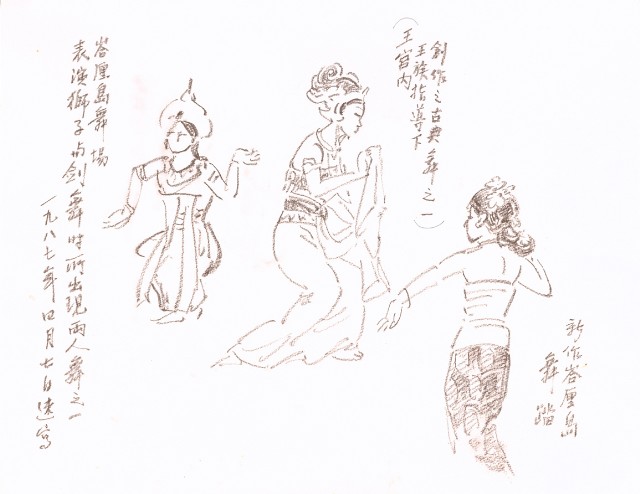 新作峇厘島
舞踏
（王宮内
王族指導下
創作之古典舞之一）
峇厘島舞場
表演獅子与劍舞時所出現兩人舞之一
一九八七年四月七日速寫